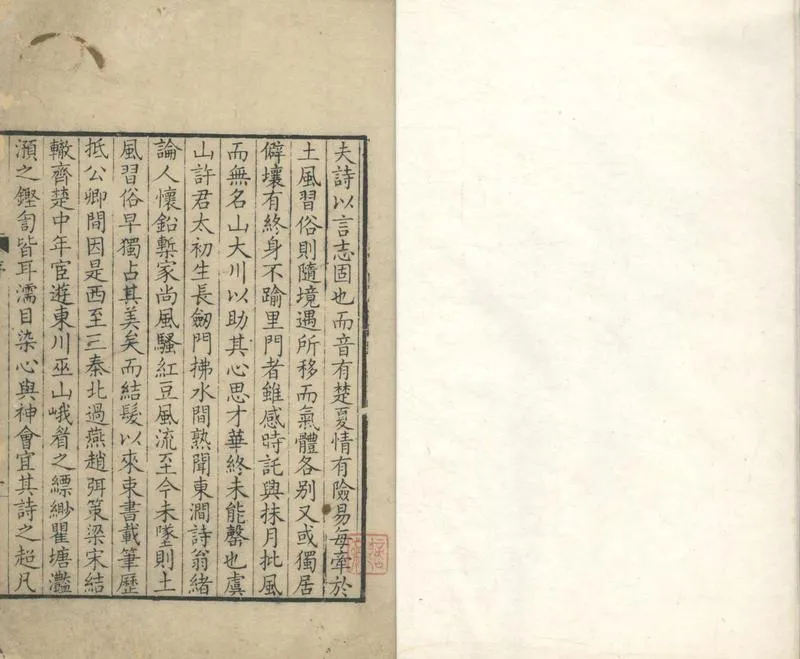 夫詩以言志固也而音有楚夏情有險易每牽於
土風習俗則隨境遇所移而氣體各別又或獨居
僻壤有終身不踰里門者雖感時託興抹月批風
而無名山大川以助其心思才華終未能罄也虞
山許君太初生長劒門拂水間熟聞東澗詩翁緒
論人懷鉛槧家尚風騷紅豆風流至今未墜則土
風習俗早獨占其美矣而結髮以來束書載筆歷
抵公卿間因是西至三秦北過燕趙弭策梁宋結
轍齊楚中年宦遊東川巫山峨眉之縹緲瞿塘灩
澦之鏗訇皆耳濡目染心與神會宜其詩之超凡
序